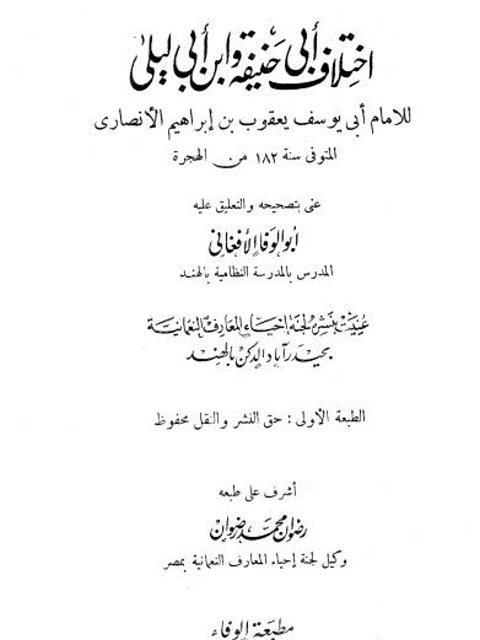 اختلاف أبي حنيفة وابن أبي ليلى
للامام أبى يوسف يعقوب بن إبراهيم الأنصارى
المتوفى سنة ١٨٢ من الهجرة
عنى بتصحيحه والتعليق عليه
أبو الوفا الأفغاني
المدرس بالمدرسة النظامية بالهند
عُنيت بنشره لجنة إحياء المعارف النعمانية
بحيدر آباد الدكن بالهند
الطبعة الأولى : حق النشر والنقل محفوظ
أشرف على طبعه
رضوان محمد رضوان
وكيل لجنة إحياء المعارف النعمانية بمصر
مطبعة الوفاء